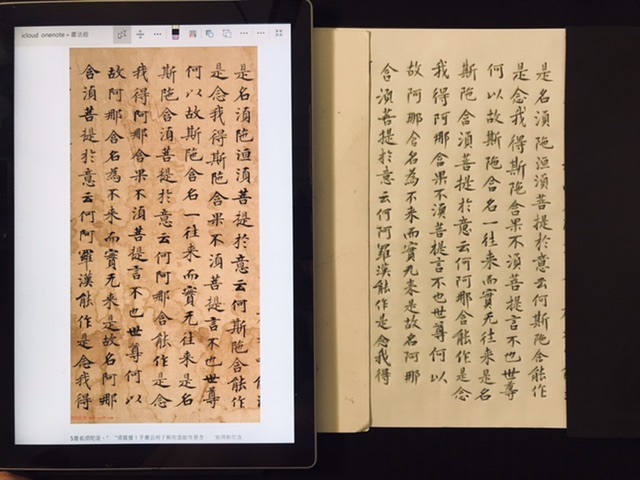 icloud onenote » 書法經
是名湏陁洹湏菩提於意云何斯陁含能作
是念我得斯陁含果不湏菩提言不也世尊
何以故斯陁含名一往来而實无往来是名
斯陁含湏菩提於意云何阿那含能作是念
我得阿那含果不湏菩提言不也世尊何以
故阿那含名為不来而實无来是故名阿那
含湏菩提於意云何阿羅漢能作是念我得
是名湏陁洹湏菩提於意云何斯陁含能作
是念我得斯陁含果不湏菩提言不也世尊
何以故斯陁含名一往来而實无往来是名
斯陁含湏菩提於意云何阿那含能作是念
我得阿那含果不湏菩提言不也世尊何以
故阿那含名為不来而實无来是故名阿那
含湏菩提於意云何阿羅漢能作是念我得